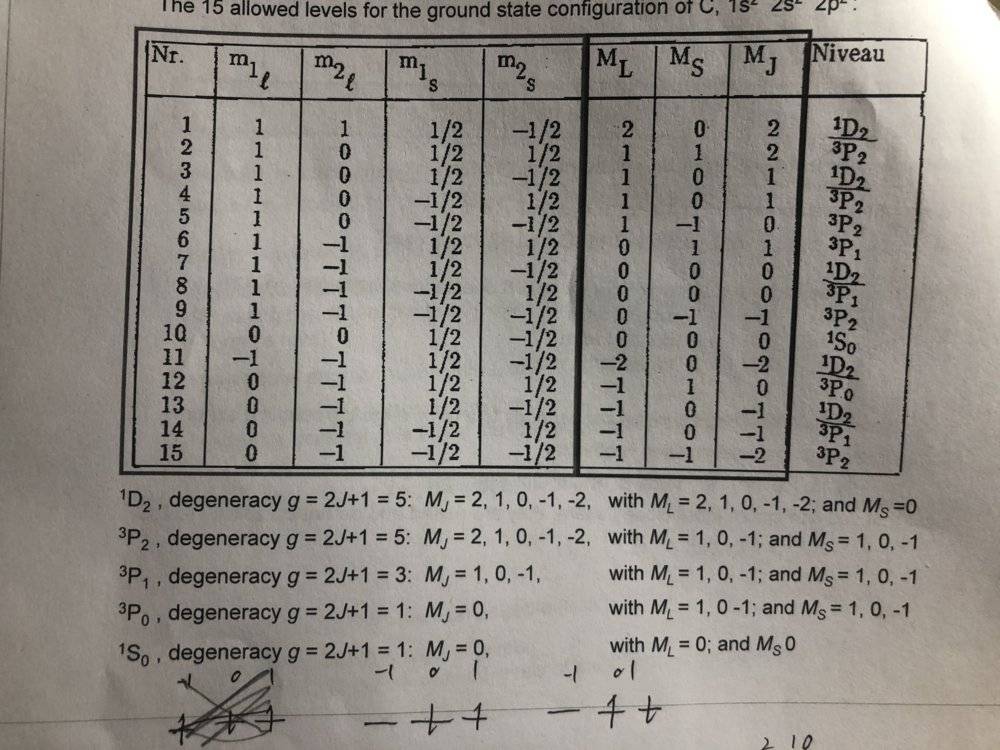 The 15 allowed levels for the ground state configuration of C, 1s² 2s² 2p² :
Nr. m1ℓ m2ℓ m1s m2s ML MS MJ Niveau
1 1 1 1/2 –1/2 2 0 2 ¹D₂
2 1 0 1/2 1/2 1 1 2 ³P₂
3 1 0 1/2 –1/2 1 0 1 ¹D₂
4 1 0 –1/2 1/2 1 0 1 ³P₂
5 1 0 –1/2 –1/2 1 –1 0 ³P₂
6 1 –1 1/2 1/2 0 1 1 ³P₁
7 1 –1 1/2 –1/2 0 0 0 ¹D₂
8 1 –1 –1/2 1/2 0 0 0 ³P₁
9 1 –1 –1/2 –1/2 0 –1 –1 ³P₂
10 0 0 1/2 –1/2 0 0 0 ¹S₀
11 –1 –1 1/2 –1/2 –2 0 –2 ¹D₂
12 0 –1 1/2 1/2 –1 1 0 ³P₀
13 0 –1 1/2 –1/2 –1 0 –1 ¹D₂
14 0 –1 –1/2 1/2 –1 0 –1 ³P₁
15 0 –1 –1/2 –1/2 –1 –1 –2 ³P₂
¹D₂ , degeneracy g = 2J+1 = 5: MJ = 2, 1, 0, -1, -2, with ML = 2, 1, 0, -1, -2; and MS =0
³P₂ , degeneracy g = 2J+1 = 5: MJ = 2, 1, 0, -1, -2, with ML = 1, 0, -1; and MS = 1, 0, -1
³P₁ , degeneracy g = 2J+1 = 3: MJ = 1, 0, -1, with ML = 1, 0, -1; and MS = 1, 0, -1
³P₀ , degeneracy g = 2J+1 = 1: MJ = 0, with ML = 1, 0 -1; and MS = 1, 0, -1
¹S₀ , degeneracy g = 2J+1 = 1: MJ = 0, with ML = 0; and MS 0
-1 0 1 -1 0 1 -1 0 1
2 10